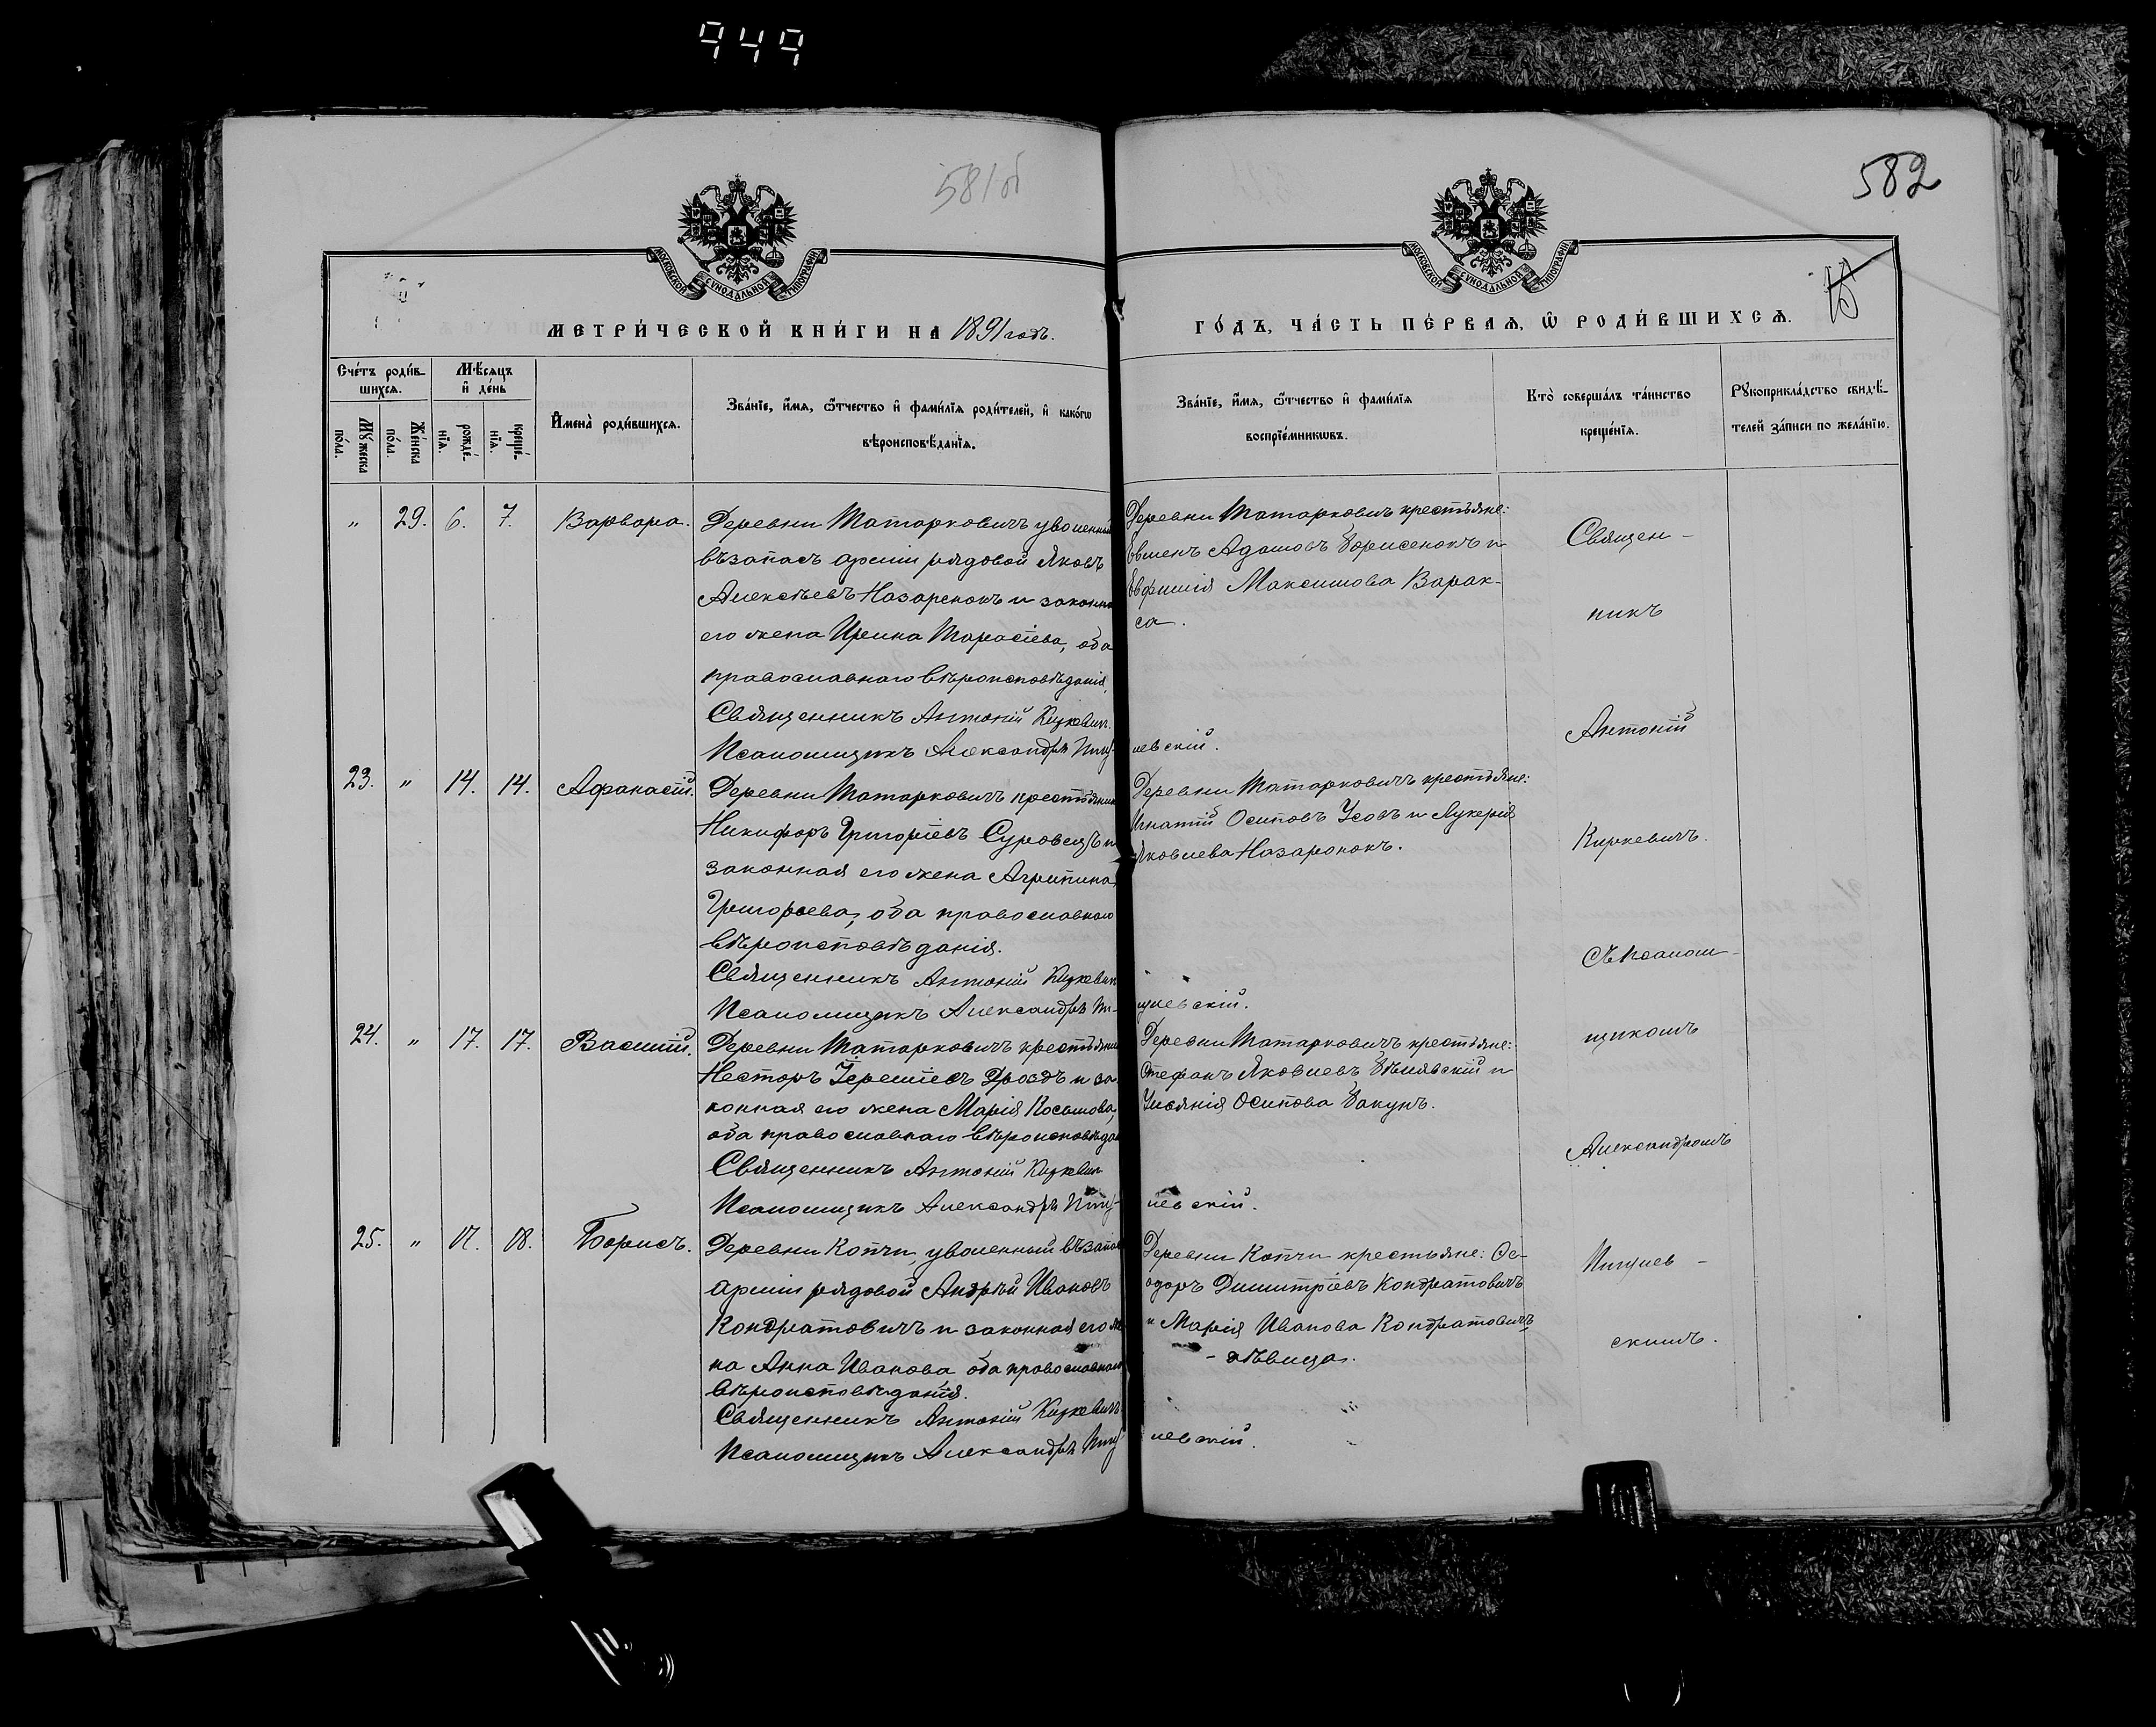 949
581об
582
МОСКОВСКОЙ СѴНОДАЛЬНОЙ ТИПОГРАФІИ
МОСКОВСКОЙ СѴНОДАЛЬНОЙ ТИПОГРАФІИ
МЕТРИ́ЧЕСКОЙ КНИ́ГИ НА 1891 годъ.
ГО́ДЪ, ЧА́СТЬ ПЕ́РВАѦ, Ѽ РОДИ́ВШИХСѦ.
Сче́тъ роди́в-
шихсѧ.
Мѣ́сяцъ
и҆ де́нь
Мꙋ́жеска
по́ла.
Же́нска
по́ла.
рожде́-
нїѧ.
креще́-
нїѧ.
И҆мена̀ роди́вшихсѧ.
Зва́нїе, и҆́мѧ, ѻ҆́тчество и҆ фами́лїѧ роди́телей, и҆ како́гѡ
вѣроисповѣ́данїѧ.
Зва́нїе, и҆́мѧ, ѻ҆́тчество и҆ фами́лїѧ
воспрїе́мникѡвъ.
Кто̀ соверша́лъ та́инство
креще́нїѧ.
Рꙋкоприкла́дство свидѣ́-
телей за́писи по жела́нїю.
" 29. 6. 7. Варвара.
Деревни Матарковичъ уволенный
въ запасъ арміи рядовой Яковъ
Алексѣевъ Назаренокъ и законная
его жена Ирина Тарасіева, оба
православнаго вѣроисповѣданія.
Священникъ Антоній Киркевичъ.
Псаломщикъ Александръ Пиц-
левскій.
Деревни Матарковичъ крестьяне:
Адамовъ Борисенокъ и
Евфимія Максимова Варак-
са.
23. " 14. 14. Афанасій.
Деревни Матарковичъ крестьянинъ
Никифоръ Григоріевъ Суровецъ и
законная его жена Агрипина
Григорьева, оба православнаго
вѣроисповѣданія.
Священникъ Антоній Киркевичъ
Псаломщикъ Александръ Пи-
цлевскій.
Деревни Матарковичъ крестьяне:
Игнатій Осиповъ Усовъ и Лукерія
Яковлева Назаронокъ.
24. " 17. 17. Василій.
Деревни Матарковичъ крестьянинъ
Несторъ Дроздъ и за-
конная его жена Марія Косьмова,
оба православнаго вѣроисповѣдан
Священникъ Антоній Киркевич
Псаломщикъ Александръ Пиц-
левскій.
Деревни Матарковичъ крестьяне:
Стефанъ Яковлевъ Бѣлявскій и
Ульянія Осипова Бакунъ.
25. " 17. 18. Борисъ.
Деревни Копчи, уволенный въ запас
арміи рядовой Андрей Ивановъ
Кондратовичъ и законная его же-
на Анна Иванова оба православнаго
вѣроисповѣданія.
Священникъ Антоній Киркевичъ
Псаломщикъ Александръ Пиц-
левскій.
Деревни Копчи крестьяне: Ѳе-
одоръ Димитріевъ Кондратовичъ
и Марія Иванова Кондратовичъ
- дѣвица.
Священ-
никъ
Антоній
Киркевичъ.
Съ псалом-
щикомъ
Александромъ
Пицлев-
скимъ.